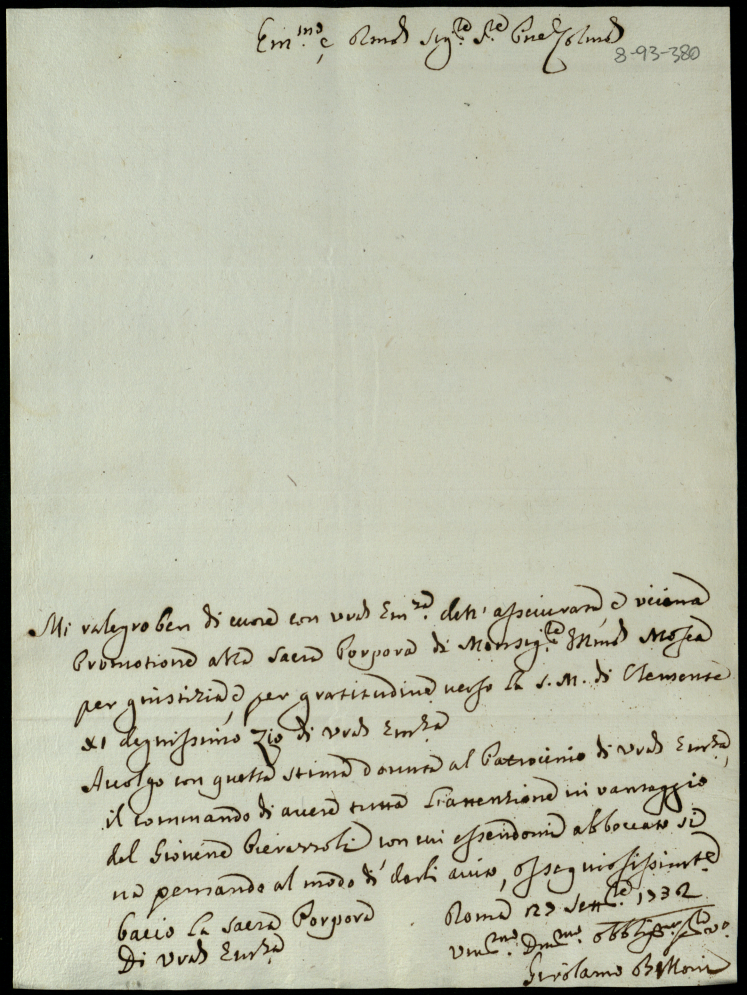 Em.mo e Rmo Sig.re S.re Pne Colmo
8-93-380
Mi ralegro ben di cuore con vra Em.za dell'assicurata, e vicina
Promotione alla sacra Porpora di Monsig.re Illmo Mosca
per giustizia, e per gratitudine verso la S. M. di Clemente
XI degnissimo Zio di vra Emza
Accolgo con quella stima dovuta al Patrocinio di vra Emza,
il commando di avere tutta l'attenzione in vantaggio
del Giovine Pierazzoli, con cui essendomi abboccato si
va pensando al modo di darli aiuto, ossequiosissimte
bacio la sacra Porpora
Di vra Emza
Roma 27 Sett.re 1732
Um.mo Dm.mo obblig.mo
Girolamo Belloni